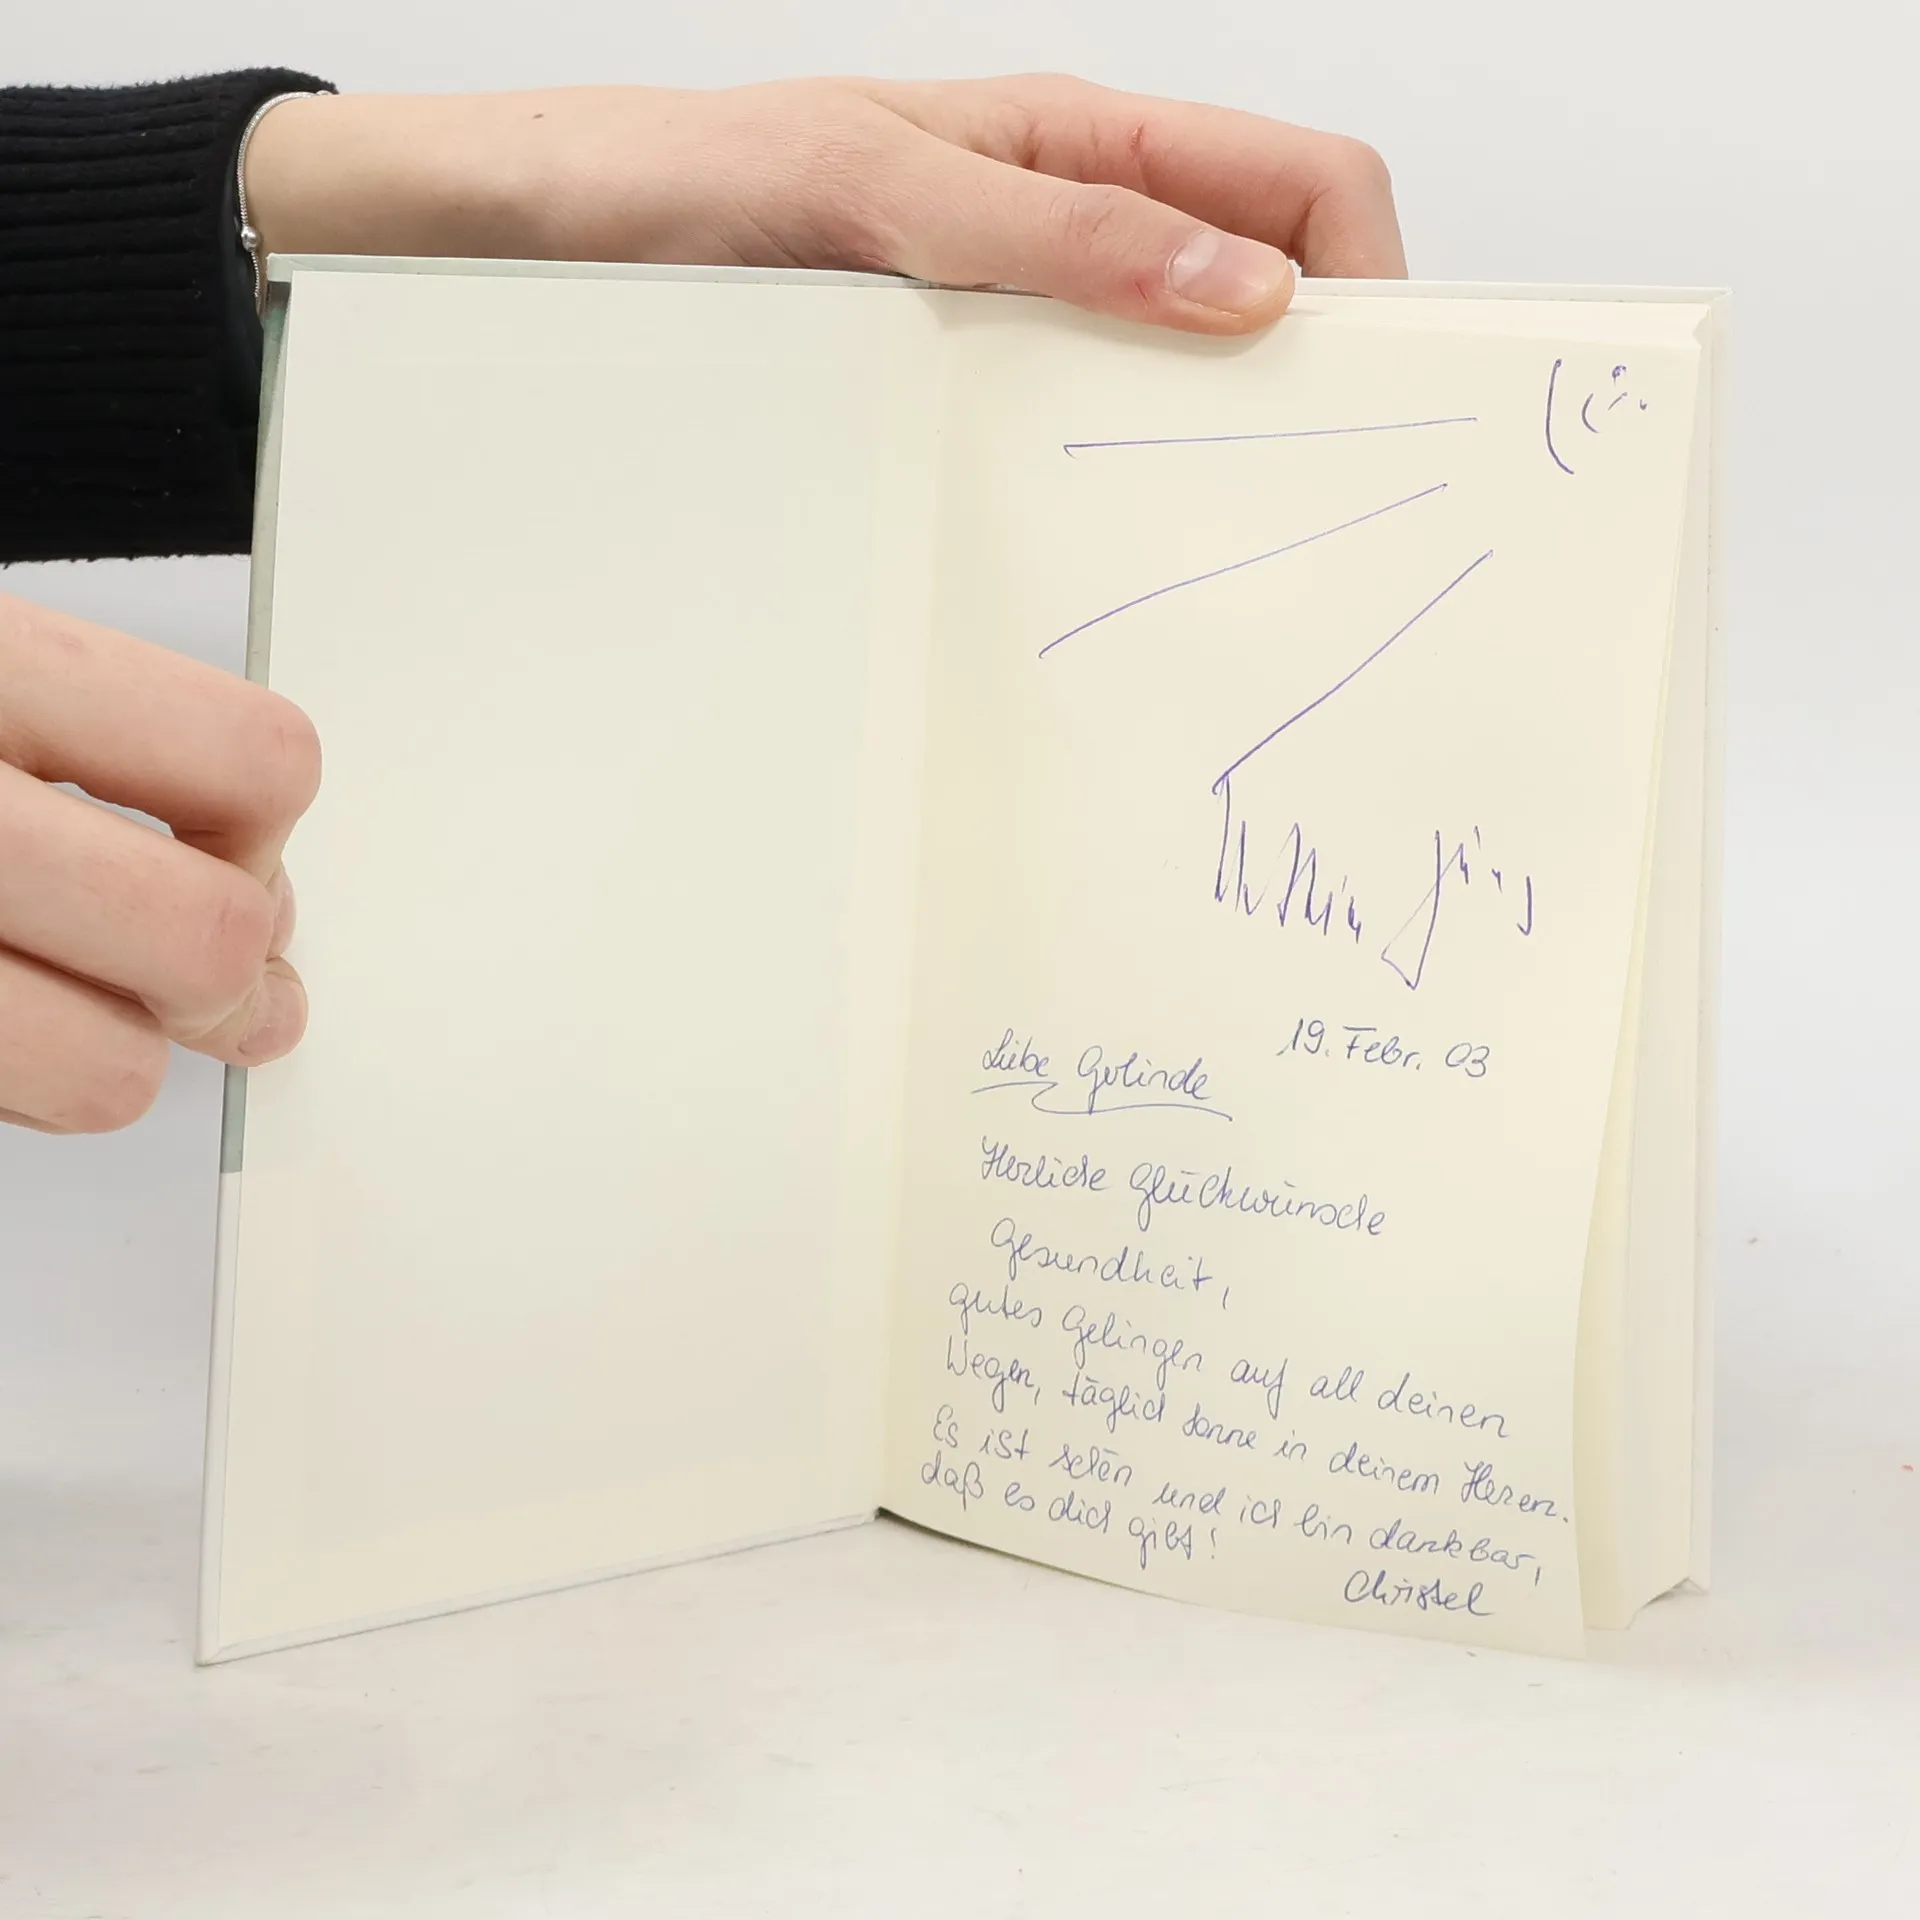 19. Febr. 03
Liebe Gerlinde
Herzliche Glückwünsche
Gesundheit,
gutes Gelingen auf all deinen
Wegen, täglich Sonne in deinem Herzen.
Es ist und ich bin dankbar,
daß es dich gibt!
Christel